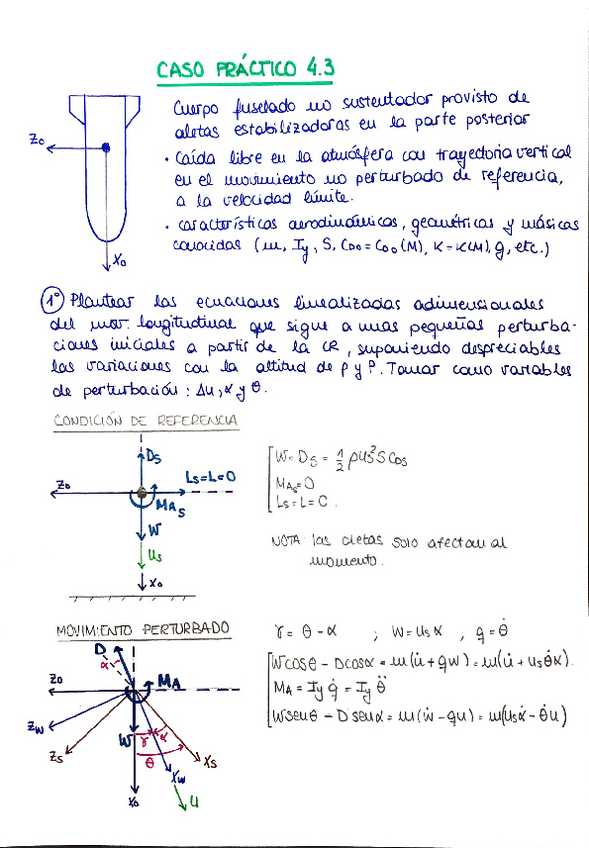 CASO PRÁCTICO 4.3
Cuerpo fuselado no sustentador provisto de
aletas estabilizadoras en la parte posterior
Zo
• Caída libre en la atmósfera con trayectoria vertical
en el movimiento no perturbado de referencia,
a la velocidad límite.
• características aerodinámicas, geométricas y másicas
conocidas (m, Iy, S, CDo = CDo (M), K = K(M), g, etc.)
Xo
1º Plantear las ecuaciones linealizadas adimensionales
del mov. longitudinal que sigue a unas pequeñas perturba-
ciones iniciales a partir de la CR, suponiendo despreciables
las variaciones con la altitud de ρ y P. Tomar como variables
de perturbación: Δu, α y θ.
CONDICIÓN DE REFERENCIA
Ds
Zo
Ls=L=0
MAs
W
Us
Xo
W = Ds = 1/2 ρUs²S CDs
MAs=0
Ls=L=0.
NOTA: las aletas solo afectan al
momento.
MOVIMIENTO PERTURBADO
γ = θ - α ; W = Us α , q = θ̇
D
α
Zo
MA
Zw
Zs
W
γ
α
θ
Xs
Xw
Xo
U
Wcosθ - Dcosα = m(u̇ + qw) = m(u̇ + Us θ̇ α).
MA = Iy q̇ = Iy θ̈
Wsenθ - D senα = m(ẇ - qu) = m(Us α̇ - θ̇ u)